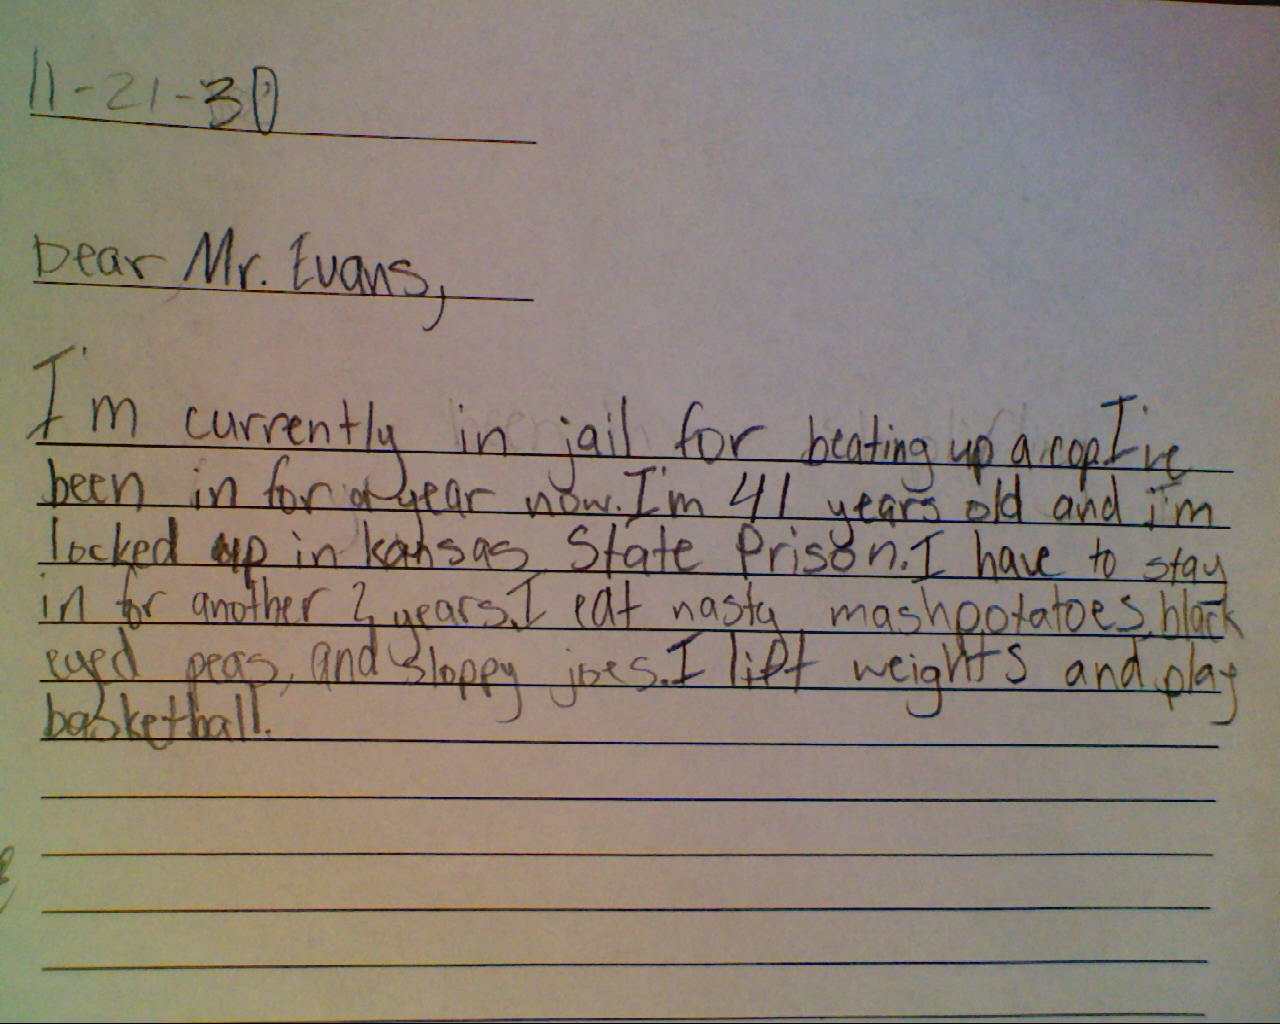 11-21-30
Dear Mr. Evans,
I'm currently in jail for beating up a cop. I've
been in for a year now. I'm 41 years old and i'm
locked up in kansas State Prison. I have to stay
in for another 2 years. I eat nasty mashpotatoes, black
eyed peas, and sloppy joes. I lift weights and play
basketball.